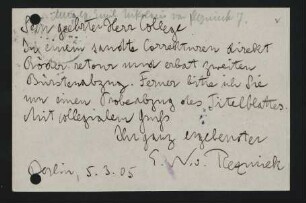 Sehr geehrter Herr College
Die einen sandte Correkturen direkt
Röder retour und erbat zweiten
Bürstenabzug. Ferner bitte ich Sie
um einen Probeabzug des Titelblattes.
Mit collegialem Gruß
Ihr ganz ergebenster
E. N. v. Reznicek
Berlin, 5.3.05